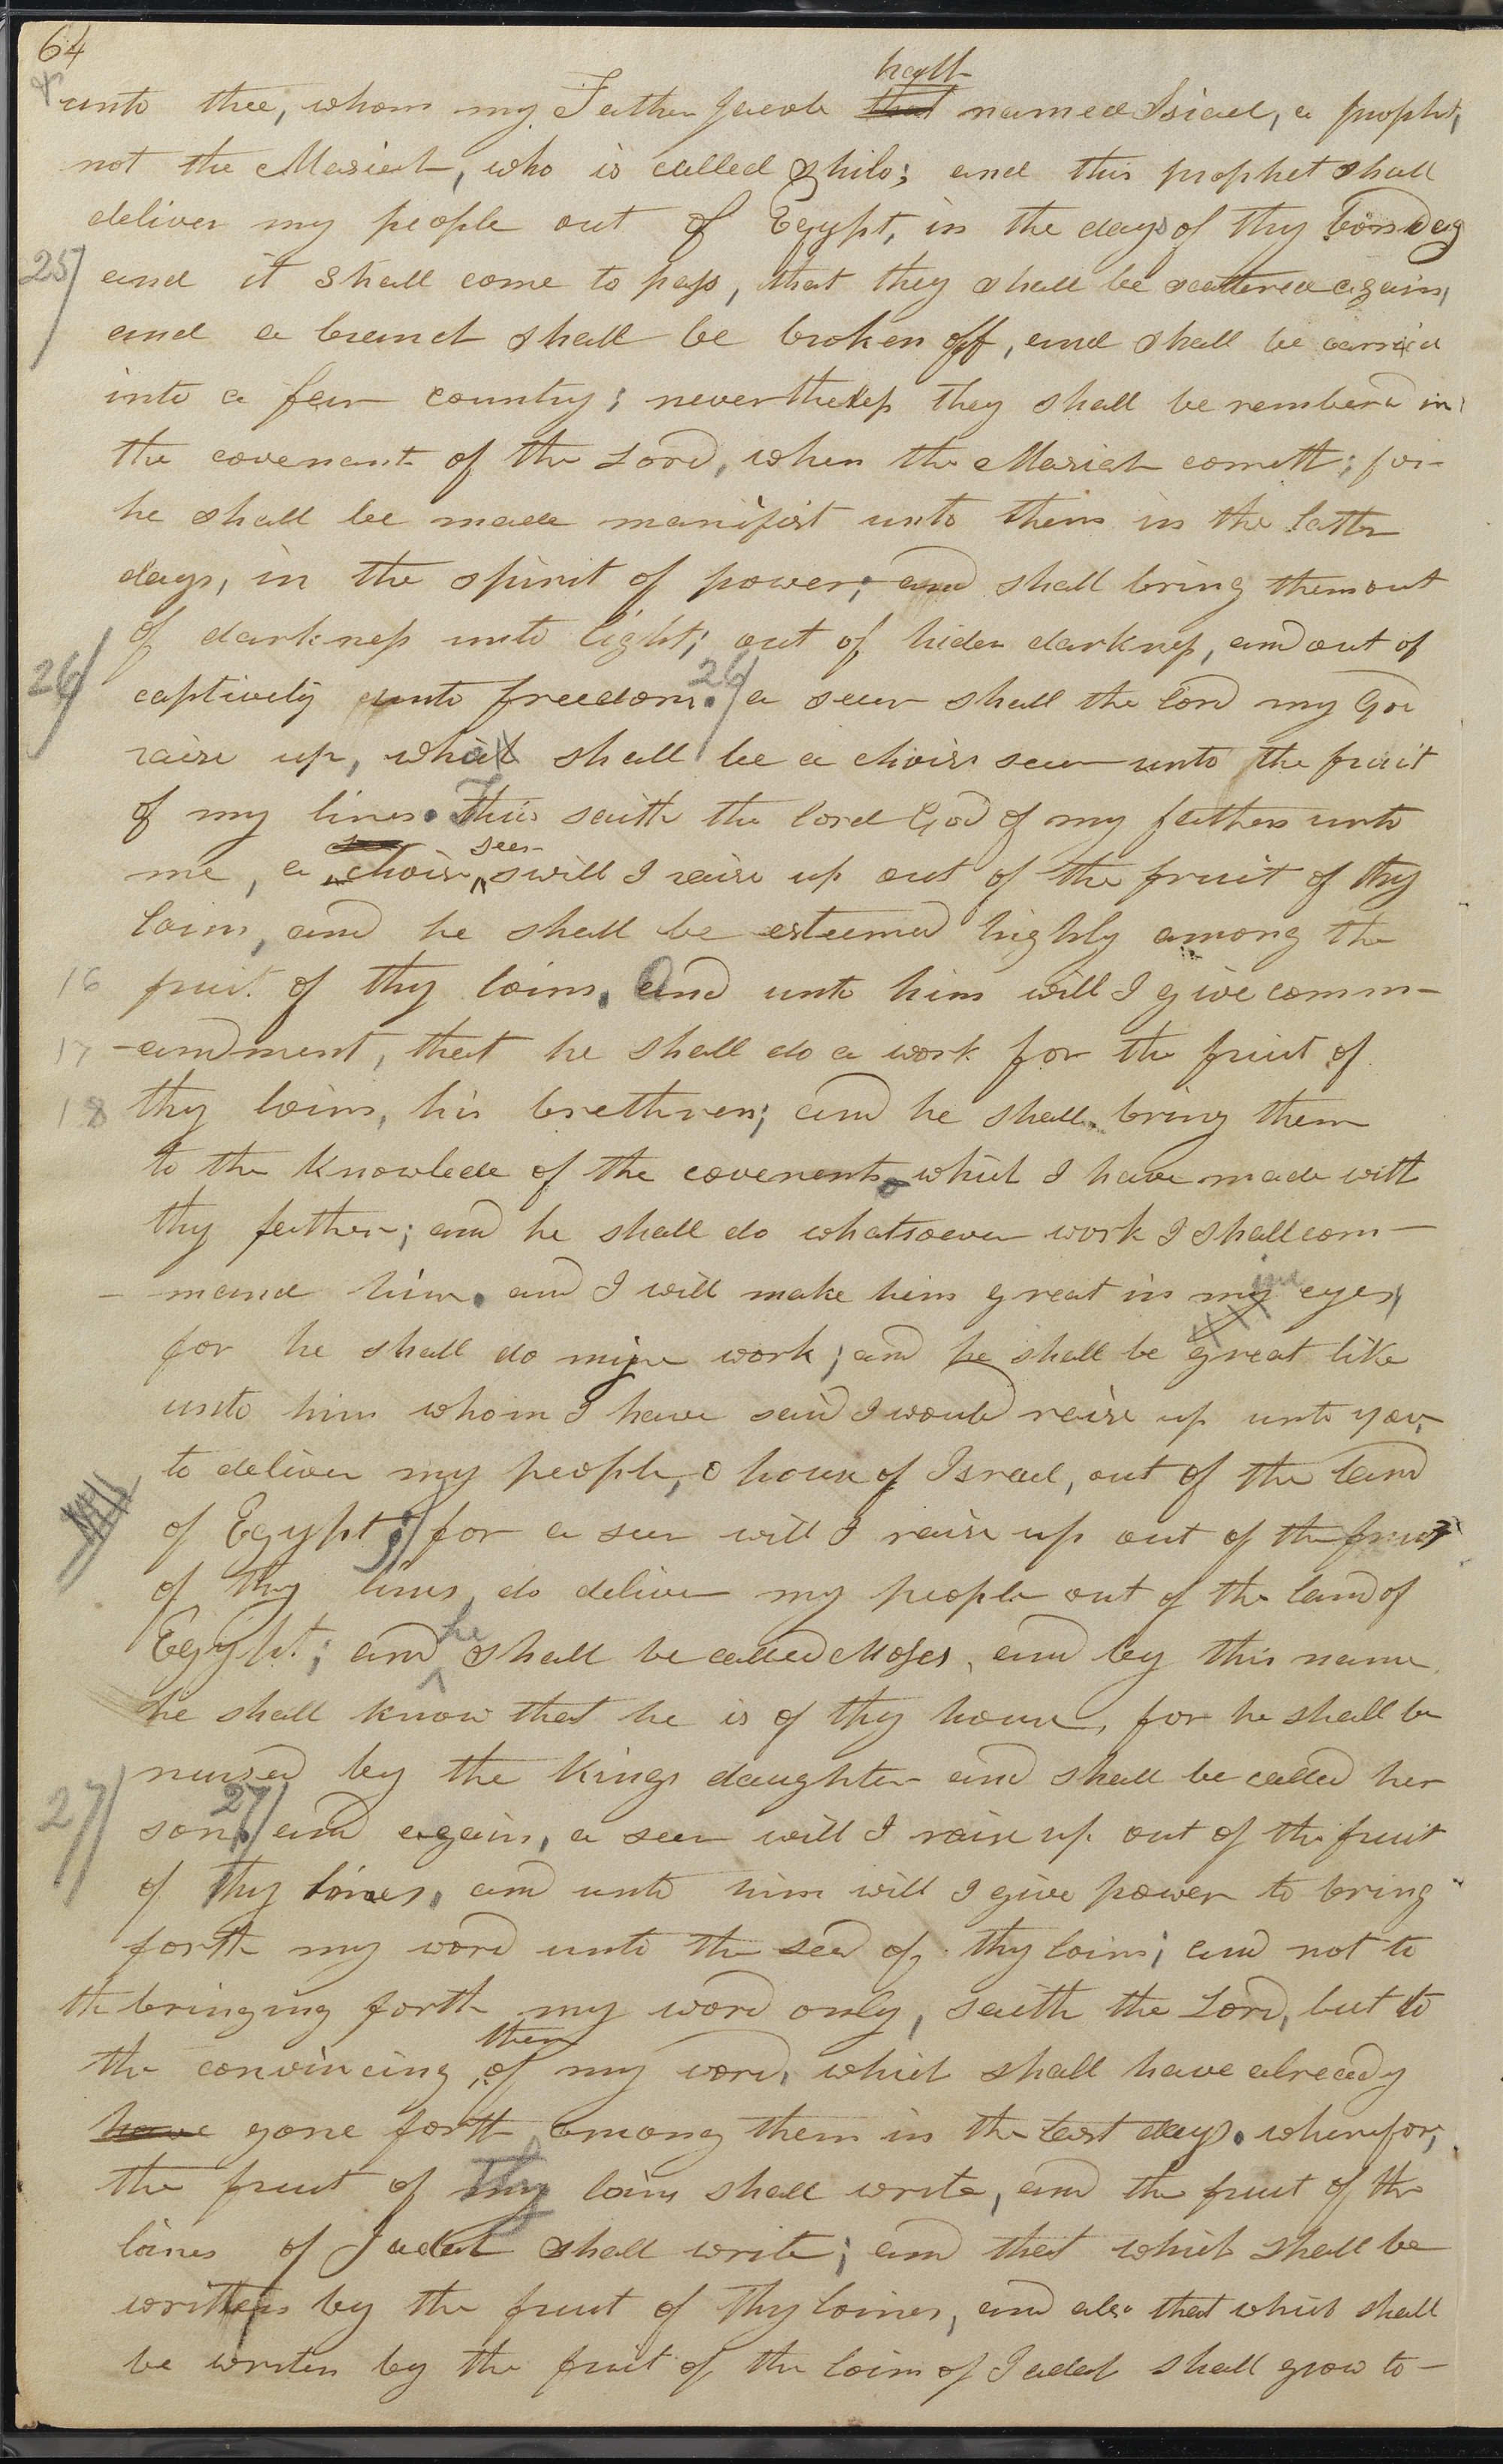 64
hath
unto thee, whom my Father Jacob that named Isiael, a prophet,
not the Masiah, who is called Shilo; and this prophet shall
deliver my people out of Egypt, in the days of thy bondag
25/ and it shall come to pass, that they shall be scattered again,
and a branch shall be broken off, and shall be carried
into a far country; nevertheless they shall be remberd in
the covenant of the Lord, when the Masiah cometh; for
he shall be made manifist unto them in the latter
days, in the spirit of power; and shall bring them out
of darkness unto light; out of hiden darkness, and out of
26/ captively unto freedom. 26/ a seer shall the lord my God
raise up, who shall be a chois seer unto the fruit
of my lines. Thus saith the lord God of my fathers unto
seer
me, a chois, will I raise up out of the fruit of thy
loins, and he shall be esteemed highly among the
16 fruit of thy loins. And unto him will I give comm-
17 -andment, that he shall do a work for the fruit of
18 thy loins, his brethren; and he shall bring them
to the knowlede of the covenants which I have made with
thy father; and he shall do whatsoever work I shall com-
ine
- mand him. and I will make him great in my eyes,
for he shall do mine work; and he shall be great like
unto him whom I have said I would raise up unto you,
to deliver my people, O house of Israel, out of the land
of Egypt; for a seer will I raise up out of the fruit
of thy lines, do deliver my people out of the land of
he
Egypt; and shall be called Moses, and by this name
he shall know that he is of thy house, for he shall be
nursed by the kings daughter and shall be called her
27/ son. 27/ and again, a seer will I raise up out of the fruit
of thy loines, and unto him will I give power to bring
forth my word unto the seed of thy loins; and not to
the bringing forth my word only, saith the Lord, but to
them
the convincing of my word, which shall have already
have gone forth among them in the last days. wherefor,
the fruit of thy loins shall write, and the fruit of the
loines of Judah shall write; and that which shall be
written by the fruit of thy loines, and also that which shall
be writen by the fruit of the loins of Judah shall grow to-